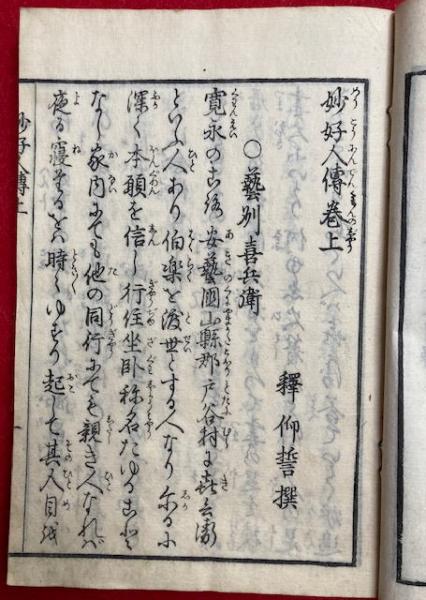 妙好人傳巻上
釋 仰誓撰
〇藝州喜兵衛
寛永のころ安藝國山縣郡戸谷村に㐂兵衛
といふ人あり伯楽を渡世とする人なりしかるに
深く本願を信し行住坐卧称名たゆること
なし家内にても他の同行にても親き人なれバ
夜る寝たるをバ時〻ゆすり起して其人目を
妙好人傳上